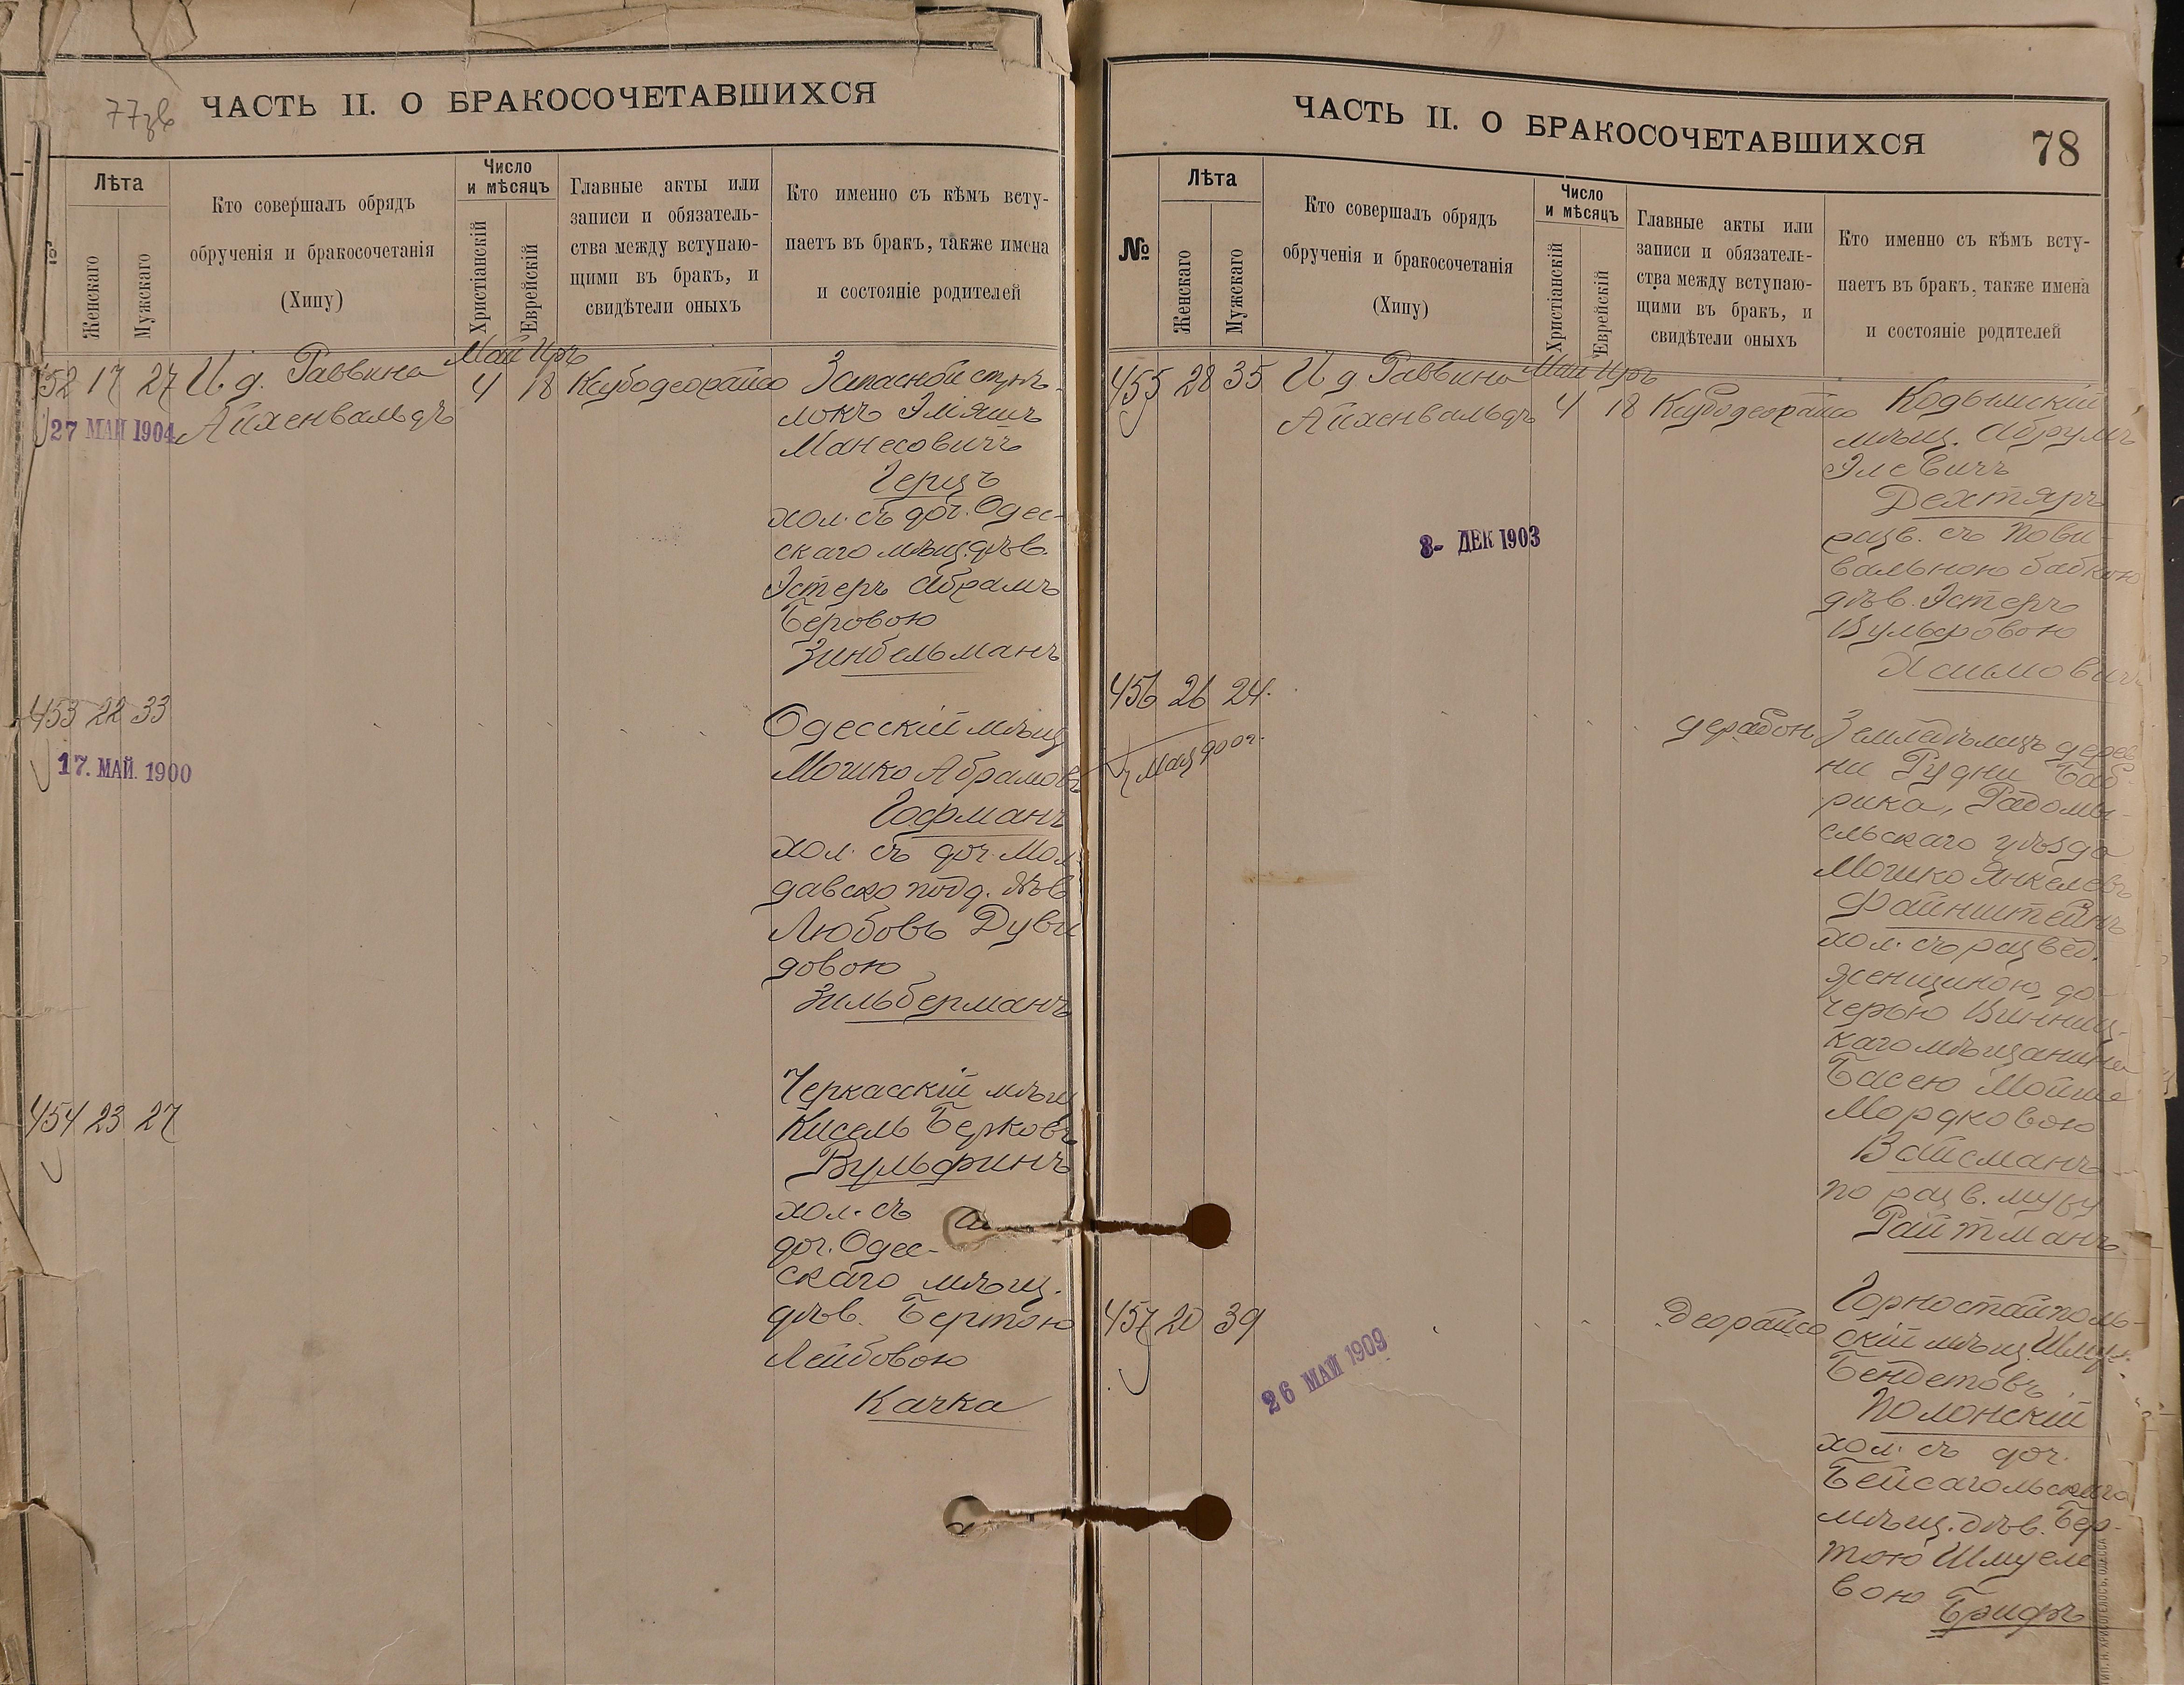 77зв
ЧАСТЬ II. О БРАКОСОЧЕТАВШИХСЯ
Лѣта
Женскаго
Мужскаго
Кто совершалъ обрядъ
обрученія и бракосочетанія
(Хипу)
Число
и мѣсяцъ
Христіанскій
Еврейскій
Главные акты или
записи и обязатель-
ства между вступаю-
щими въ бракъ, и
свидѣтели оныхъ
Кто именно съ кѣмъ всту-
паетъ въ бракъ, также имена
и состояніе родителей
Май Иръ
52 17 27 И д. Раввина 4 18
27 МАЙ 1904
Айхенвальдъ
Запасной стрѣ-
локъ Эліяшъ
Манесовичъ
Герцъ
хол. съ доч. Одес-
скаго мѣщ. дѣв.
Эстеръ Абрамъ
Беровою
Зинбельманъ
453 22 33
17. МАЙ. 1900
Одесскій мѣщ
Мошко Абрамовъ
Гофманъ
хол. съ доч. Мол-
давско подд. дѣв
Любовь Дуви
довою
Зильберманъ
454 23 27
Черкасскій мѣщ
Кисель Берковъ
Вульфинъ
хол. съ
доч. Одес-
скаго мѣщ.
дѣв. Бертою
Лейбовою
Качка
ЧАСТЬ II. О БРАКОСОЧЕТАВШИХСЯ
78
№
Лѣта
Женскаго
Мужскаго
Кто совершалъ обрядъ
обрученія и бракосочетанія
(Хипу)
Число
и мѣсяцъ
Христіанскій
Еврейскій
Главные акты или
записи и обязатель-
ства между вступаю-
щими въ бракъ, и
свидѣтели оныхъ
Кто именно съ кѣмъ всту-
паетъ въ бракъ, также имена
и состояніе родителей
Май Иръ
455 28 35 И д Раввина 4 18
Айхенвальдъ
8- ДЕК 1903
Кодымскій
мѣщ. Абрумъ
Элевичъ
Дехтяръ
разв. съ Пови-
вальною бабкою
дѣв. Эстеръ
Вульфовою
Хаимовичъ
456 26 24.
Земледѣлецъ дерев
ни Рудни Баб-
рика, Радомы-
сльскаго уѣзда
Мошко Янкелевъ
Файнштейнъ
хол. съ развед.
женщиною, до-
черью Винниц-
каго мѣщанина
Басею Мойше
Мордковою
Вайсманъ
по разв. мужу
Райтманъ
457 20 39
26 МАЙ 1909
Деорайсо
Горностайполь-
скій мѣщ. Шмуль
Бендетовъ
Полонскій
хол. съ доч.
Бейсагольскаго
мѣщ. дѣв. Бер-
тою Шмуеле
вою